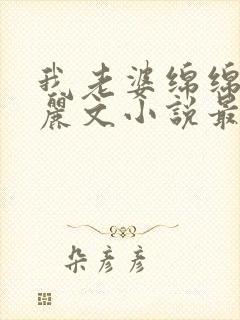 我老婆绵绵
麗文小说最
朵彦彦